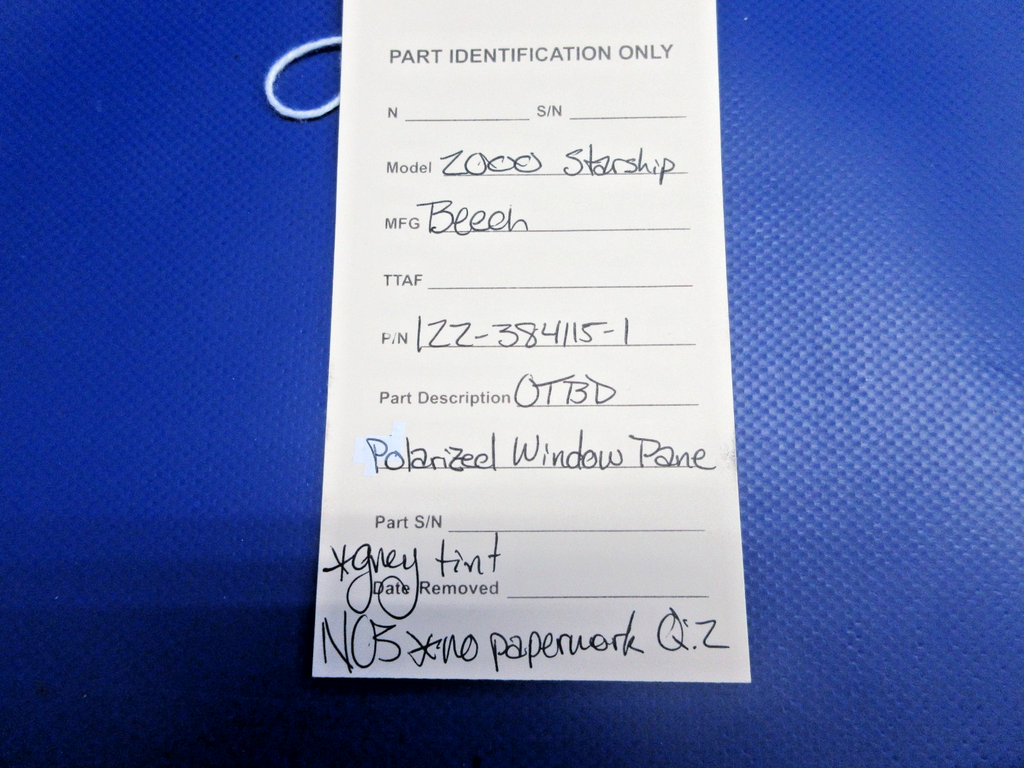 PART IDENTIFICATION ONLY
N S/N
Model 2000 Starship
MFG Beech
TTAF
P/N 122-384115-1
Part Description OTBD
Polarized Window Pane
Part S/N
*grey tint
Date Removed
NOS *no paperwork Q:2